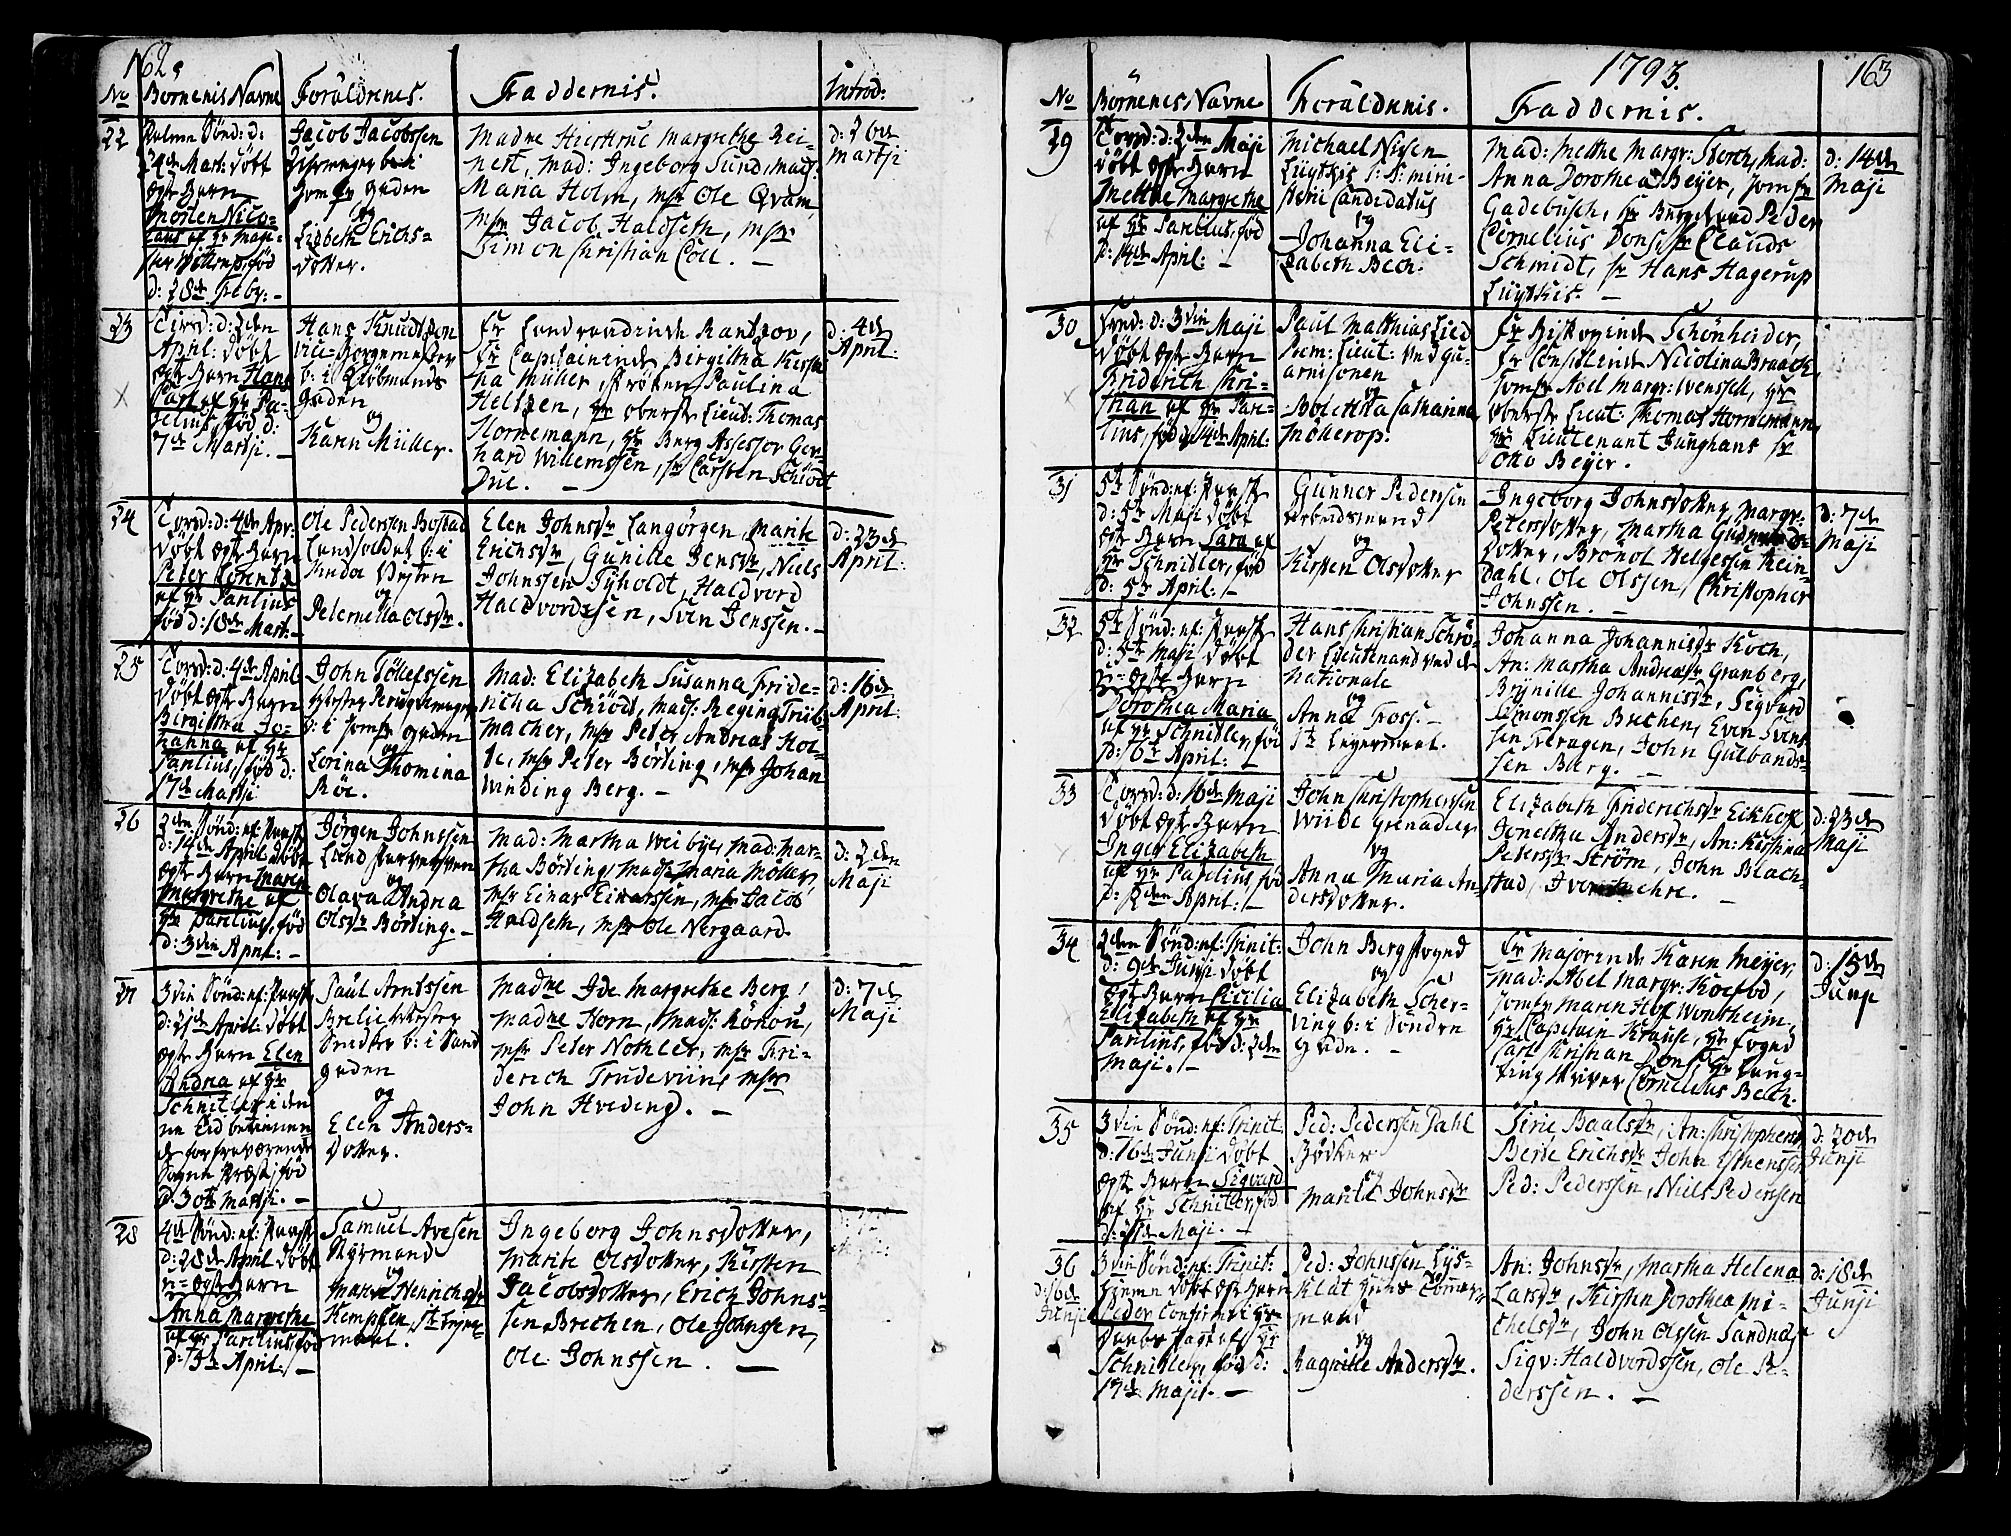 162.
No Börnenis Navne Foräldrenes. Faddernis. Introd:
22
Palme Sönd: d:
24de Mart: döbt
ægte Barn
Morten Nico-
laus af Hr Magi-
ster Wittrup, fød
d: 28de Feb:
Jacob Jacobssen
og
Lisbeth Erichs-
dotter.
Madme Hierthruc Margrethe Rei-
nert, Mad: Ingeborg Sund, Mad:
Maria Holm, Msr Ole Qvam
Msr Jacob Haldseth, Msr
Simon Christian Coll. —
d: 26de
Martji
23
Tirsd: d: 2den
April: döbt
ægte Barn Hans
Carl af Hr Pa-
relius, fød d:
7de Martji. —
Hans Knudtson
Vice-Borgemester
b: i Kiöbmands
Gaden
og
Karen Müller.
Fr Landraadinde Rantzov,
Fr Capitaininde Bergitha Kirsti-
na Müller, Fröken Paulina
Heltzen, Hr Oberste Lieut: Thomas
Hornemann, Hr Berg Assessor Ger-
hard Willemssen, Sr Carsten Schiödt
Due. —
d: 4de
April:
24
Torsd: d: 4de Apr:
döbt ægte Barn
Peter Lorentz
af Hr Parelius
fød d: 18de Mart: —
Ole Pedersen Bostad
Landsoldat b: i
og
Peternella Olsdr.
Elen Johnsdr Langörgen, Marite
Erichsdr, Gunille Jensdr, Niels
Johnssen Tyholdt, Haldvord
Haldvordssen, Sven Jenssen. —
d: 23de
April:
25
Torsd: d: 4de April
döbt ægte Barn
Bergitha Jo-
hanna af Hr
Parelius, fød d:
17de Martji
John Töllefssen
Mester Peruqvemager
b: i Jomfr Gaden
og
Lorina Thomina
Röe.
Mad: Elizabeth Susanna Fride-
richa Schiödt, Mad: Regina Trüb-
macher, Msr Peter Andreas Hol-
te, Msr Peter Börting, Msr Johan
Winding Berg. —
d: 16de
April:
26
2den Sönd: ef: Paask
d: 14de April döbt
ægte Barn Maren
Margrethe af
Hr Parelius, fød
d: 3die April: —
Jörgen Johnssen
Lund
og
Olava Andrea
Olsdr Börting. —
Mad: Martha Weibye, Mad: Mar-
tha Börting, Mad: Maria Möller,
Msr Einar Einarssen, Msr Jacob
Haldseth, Msr Ole Nergaard.
d: 2den
Maji
27
3die Sönd: ef: Paask
d: 21de April: döbt
ægte Barn Elen
Andrea af Hr
Schnitler i den
d: 30te Martji. —
Paul Arntssen
Brelie Mester
Smed b: i Sand
gaden
og
Elen Anders-
dotter.
Madme Ide Margrethe Berg,
Madme Horn, Mad: Konou,
Msr Peter Nothler, Msr Fri-
derich Trudeviin, Msr
John Hveding. —
d: 7de
Maji
28
4de Sönd: ef: Paask
d: 28de April döbt
u-ægte Barn
Anna Margrethe
af Hr Parelius, fød
d: 13de April: —
Samuel Avesen
Styrmand
og
Maren Henrichsdr
Kempfen, 1te Leyer-
maal.
Ingeborg Johnsdotter,
Marite Olsdotter, Kirsten
Jacobsdotter, Erich Johns-
sen Brechen, Ole Johnssen,
Ole Johnssen. —

1793. 163
No Börnenes Navne Foräldrenis. Faddernis.
29
Torsd: d: 2den Maji
döbt ægte Barn
Methe Margrethe
af Hr Parelius, fød
d: 14de April: —
Michael Nisen
Lÿtkis S: S: Mini-
sterii Candidatus
og
Johanna Eli-
zabeth Bech.
Mad: Methe Margr: Storch, Mad:
Anna Dorothea Beyer, Jomfr
Gadebusch, Sr Borgelund Peder
Cornelius Dons, Sr Claus
Schmidt, Sr Hans Hagerup
Lÿtkis. —
d: 14de
Maji
30
Fred: d: 3die Maji
döbt ægte Barn
Friderich Chri-
stian af Hr Pare-
lius, fød d: 14de April:
Paul Matthias Lied
Prem: Lieut: ved Gu-
arnisonen
og
Bolettha Catharina
Möllerop.
Fr Biskopinde Schönheider,
Fr Consulinde Nicolina Braack,
Jomfr Abel Margr: Wensell, Hr
Oberste Lieut: Thomas Hornemann,
Hr Lieutenant Junghans Sr
Otto Beÿer.
31
5te Sönd: ef: Paask
d: 5te Maji döbt
ægte Barn Sara af
Hr Schnitler, fød
d: 5te April: —
Gunner Pedersen
Arbeidsmand
og
Kirsten Olsdotter
Ingeborg Johnsdotter, Margr:
Petersdotter, Martha Gudmunds-
dotter, Brönol Helgessen Rein-
dahl, Ole Olssen, Christopher
Johnssen. —
d: 7de
Maji
32
5te Sönd: ef: Paask
d: 5te Maji döbt
u-ægte Barn
Dorothea Maria
af Hr Schnitler, fød
d: 16de April: —
Hans Christian Schrö-
der Lieutenand ved de
Nationale
og
Anna Foss. —
1te Leyermaal.
Johanna Johannisdr Koch,
An: Martha Andreasdr Granberg,
Brynille Johannisdr, Sigvard
Simonssen Brechen, Even Svend-
sen, John Gulbrands-
sen Berg. —
33
Torsd: d: 16de Maji
döbt ægte Barn
Inger Elizabeth
af Hr Parelius, fød
d: 12den April: —
John Christopherssen
Wiide Grenadier
og
Anna Maria An-
dersdotter.
Elizabeth Friderichsdr Eckhof
Joneltha Andersdr, An: Kirstina
Petersdr Ström, John Blach-
stad, Iver —
d: 23de
Maji
34
2den Sönd: ef: Trinit:
d: 9de Junji döbt
ægte Barn Cicilia
Elizabeth af Hr
Parelius, fød d: 2den
Maji. —
John Berg Foged
og
Elizabeth Scher-
ving b: i Söndre
Gade. —
Fr Majorinde Karen Meÿer,
Mad: Abel Margr: Koefod,
Jomfr Maren Hof Wontheim,
Hr Capitain Krause, Hr Foged
Carl Christian Dons, Hr Laug-
ting Skriver Cornelius Bech.
d: 15de
Junji
35
3die Sönd: ef: Trinit:
d: 16de Junji döbt
ægte Barn Sigvard
af Hr Schnitler, fød
d: 21de Maji. —
Ped: Pedersen Dahl
Bödker
og
Marite Johnsdr
Sirie Baalsdr, An: Christophersdr
Berte Erichsdr John Esthenssen
Ped: Pedersen, Niels Pedersen
d: 20de
Junji
36
d: 16de
Junji
3die Sönd: ef: Trinit:
hjemme döbt ægte Barn
Peder Confirmert
Schnitler, fød d:
17de Maji. —
Ped: Johnssen Lys-
klæt Huus Tömmer-
mand
og
Aagnille Andersdr.
An: Johnsdr, Martha Helena
Larsdr, Kirsten Dorothea Mi-
chelsdr, John Olssen Sandnes,
Sigv: Haldvordssen, Ole Pe-
derssen. —
d: 18de
Junji